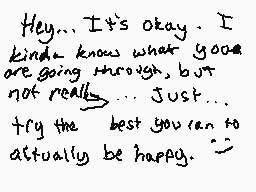 Hey... It's okay. I
kinda know what you
are going through, but
not really... Just...
try the best you can to
actually be happy. :)